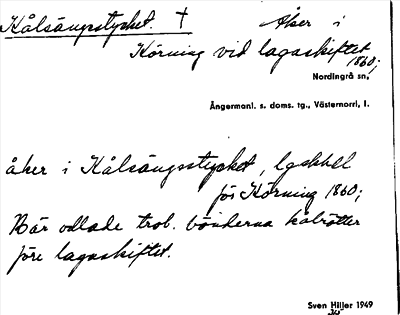 Kålsängsstycket. † Åker i
Körning vid lagaskiftet
1860;
Nordingrå sn,
Ångermanl. s. doms. tg., Västernorrl, l.
åker i Kålsängsstycket, Lgsktbl
för Körning 1860;
Här odlade trol. bönderna kålrötter
före lagaskiftet.
Sven Hiller 1949